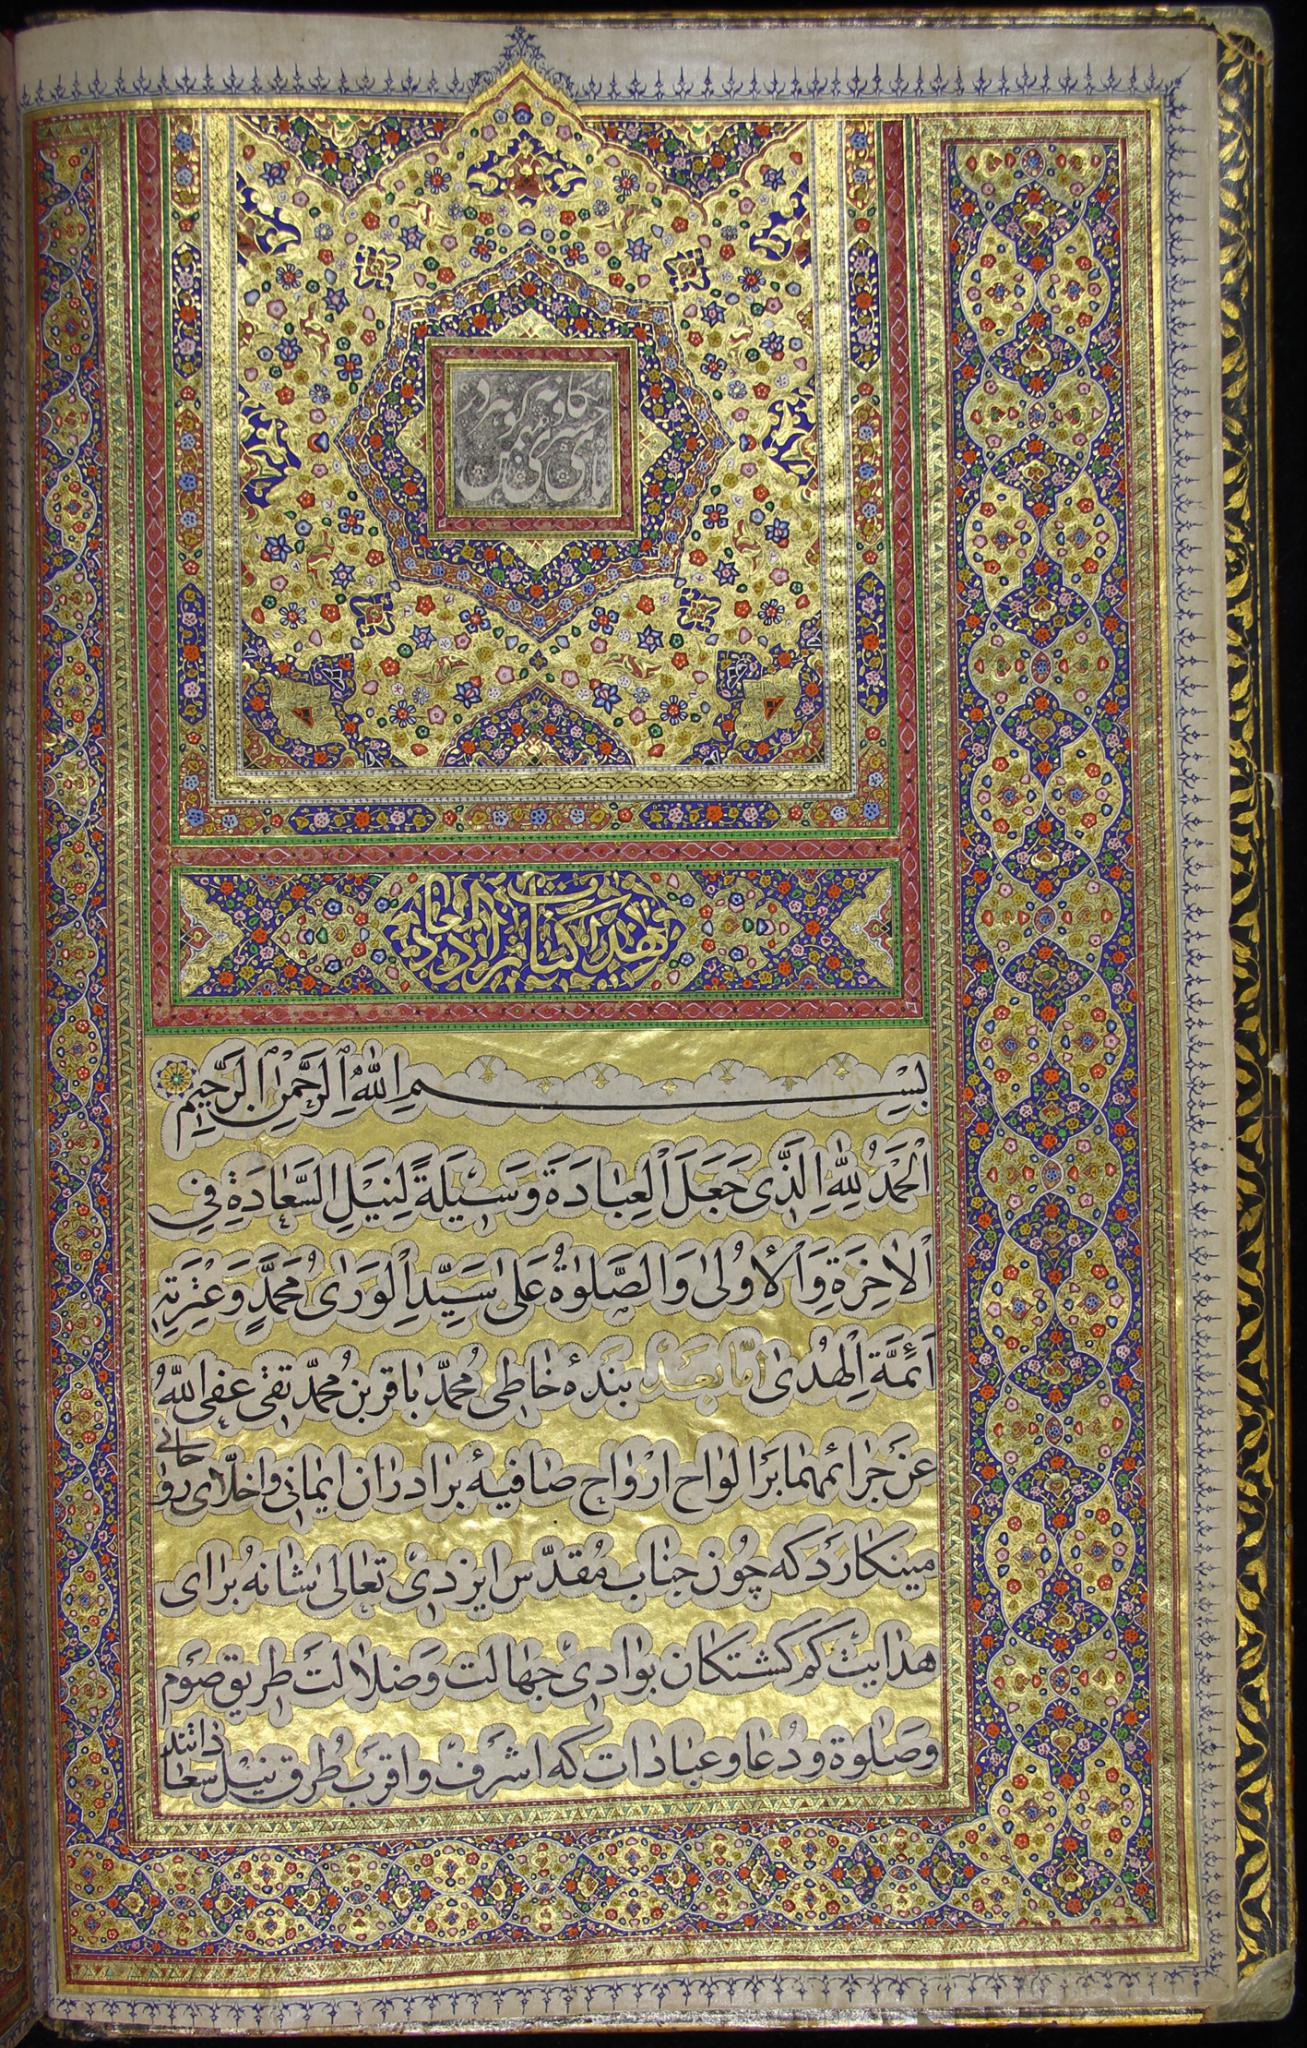 هذا كتاب زاد المعاد
بِسْمِ اللّٰهِ الرَّحْمٰنِ الرَّحِيمِ
اَلْحَمْدُ لِلّٰهِ الَّذی جَعَلَ الْعِبادَةَ وَسیلَةً لِنَیْلِ السَّعٰادَةِ فِی
الْاٰخِرَةِ وَالْاُولیٰ وَالصَّلوٰةُ عَلیٰ سَیِّدِ الْوَریٰ مُحَمَّدٍ وَعِتْرَتِهِ
اَئِمَّةِ الْهُدیٰ امّا بَعد بندهٔ خاطی محمّد باقر بن محمّد تقی عفی اللّٰهُ
عَنْ جَرائمهما بر الواح ارواح صافیهٔ برادران ایمانی و اخلّای روحانی
مینکارد که چون جناب مقدّس ایزدی تعالی شانه برای
هدایت کم کشتکان بوادی جهالت و ضلالت طریق صوم
و صلوة و دعا و عبادات که اشرف و اقرب طرق نیل سعادتند